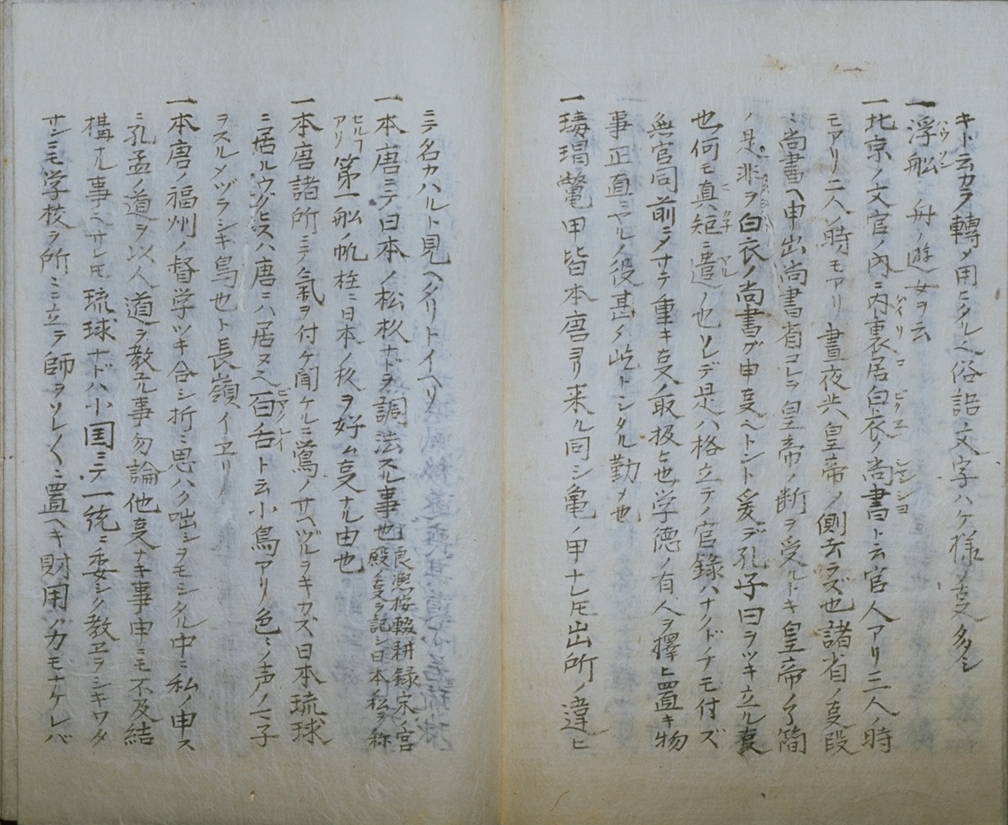 キト云カラ轉〆用ヒタルヘ俗語ノ文字ハケ様ノ支多シ
一浮舩 舟ノ遊女ヲ云
一北京ノ文官ノ内ニ内裏居白衣ノ尚書ト云官人アリ三人ノ時
モアリ二人ノ時モアリ 晝夜共皇帝ノ側去ラズ也諸省ノ支段
ニ尚書ヘ申出尚書省コレヲ皇帝ノ断ヲ受ルトキ皇帝ノ了簡
ノ是非ヲ白衣ノ尚書ガ申支ヘトント爰デ孔子曰ヲツキ立ル衷
也何モ真矩ニ遣ノ也ソレデ是ハ格立テノ官錄ハナクドチモ付ズ
無官同前ニ〆サテ重キ支ノ取扱ヒ也学徳ノ有人ヲ擇ヒ置キ物
事正直ニヤルノ役甚タ屹トシタル勤〆也
一瑇瑁鼈甲皆本唐ヨリ来ル同シ亀ノ甲ナレ𪜈出所ノ違ヒ
ニテ名カハルト見ヘタリトイヘリ
一本唐ニテ日本ノ松杦ナトヲ調法スル事也 良應按輟耕録宋ノ宮
殿ノ支ヲ記シ日本松ヲ称
セルフアリ 第一舩ノ帆柱ニ日本ノ杦ヲ好ム支ナル由也
一本唐諸所ニテ氣ヲ付ケ聞ケルニ鶯ノサヘヅルヲキカズ日本琉球
ニ居ルウグヒスハ唐ニハ居スヘ百舌ト云小鳥アリ色々ノ声ノ子
ヲスルメヅラシキ鳥也ト長嶺イエリ
一本唐ノ福州ノ督学ツキ合シ折ニ思ハク咄シヲモシタル中ニ私ノ申ス
ニ孔孟ノ道ヲ以人道ヲ教ル事勿論他支ナキ事申ニモ不及結
構ナル事ヘサレ𪜈琉球ナドハ小国ニテ一統ニ委シク教ヱヲシキワタ
サンニモ学校ヲ所々ニ立テ師ヲソレ〱ニ置ヘキ財用ノカモナケレバ